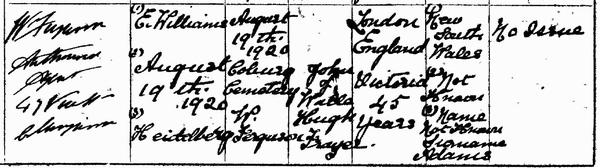 W Ferguson
Authorised
Agent
(1) E. Williams
(2) August
19th.
1920
(3) Heidelberg
August
19th.
1920
Coburg
Cemetery
W.
Ferguson
John
Hugh
Frazer
London
England
Victoria
45
Years
New
South
Wales
(2) Not
Known
(3) Name
Not Known
Signame
Adams
No Issue